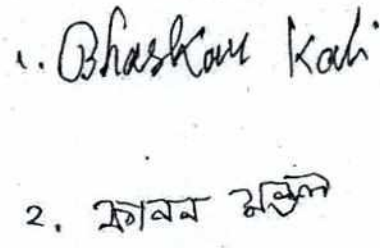 1. Bhaskar Kali
2. কানন মন্ডল